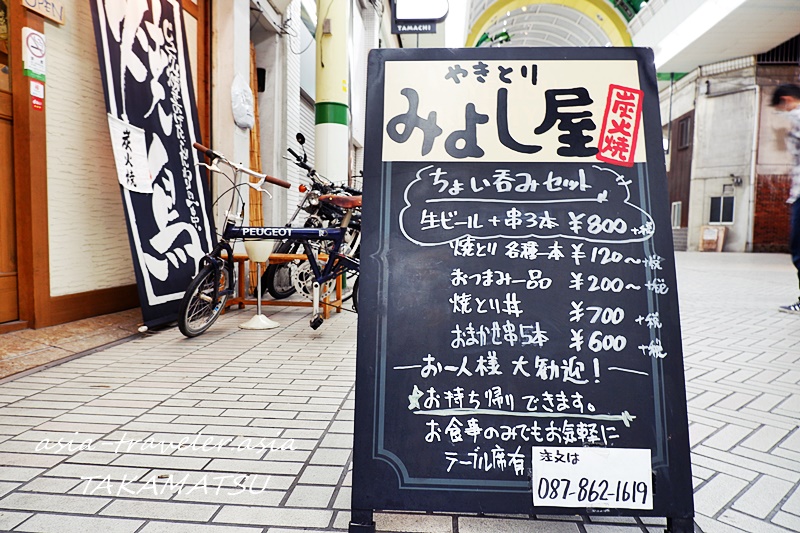 OPEN
TAMACHI
焼鳥
炭火焼
PEUGEOT
やきとり
みよし屋
炭火焼
ちょい呑みセット
生ビール+串3本 ¥800+税
焼とり各種一本 ¥120~+税
おつまみ一品 ¥200~+税
焼とり丼 ¥700+税
おまかせ串5本 ¥600+税
お一人様 大歓迎!
☆お持ち帰りできます。
お食事のみでもお気軽に
テーブル席有
注文は
087-862-1619
asia-traveler.asia
TAKAMATSU